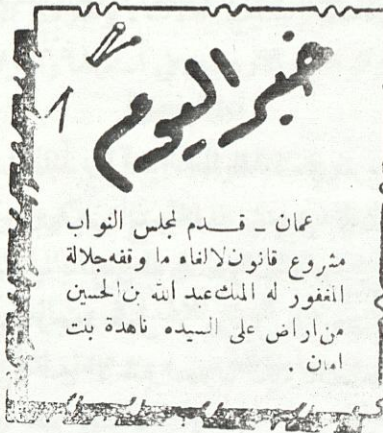 خبر اليوم
عمان - قدم لمجلس النواب
مشروع قانون لالغاء ما وقفه جلالة
المغفور له الملك عبد الله بن الحسين
من اراض على السيده ناهدة بنت
امان .